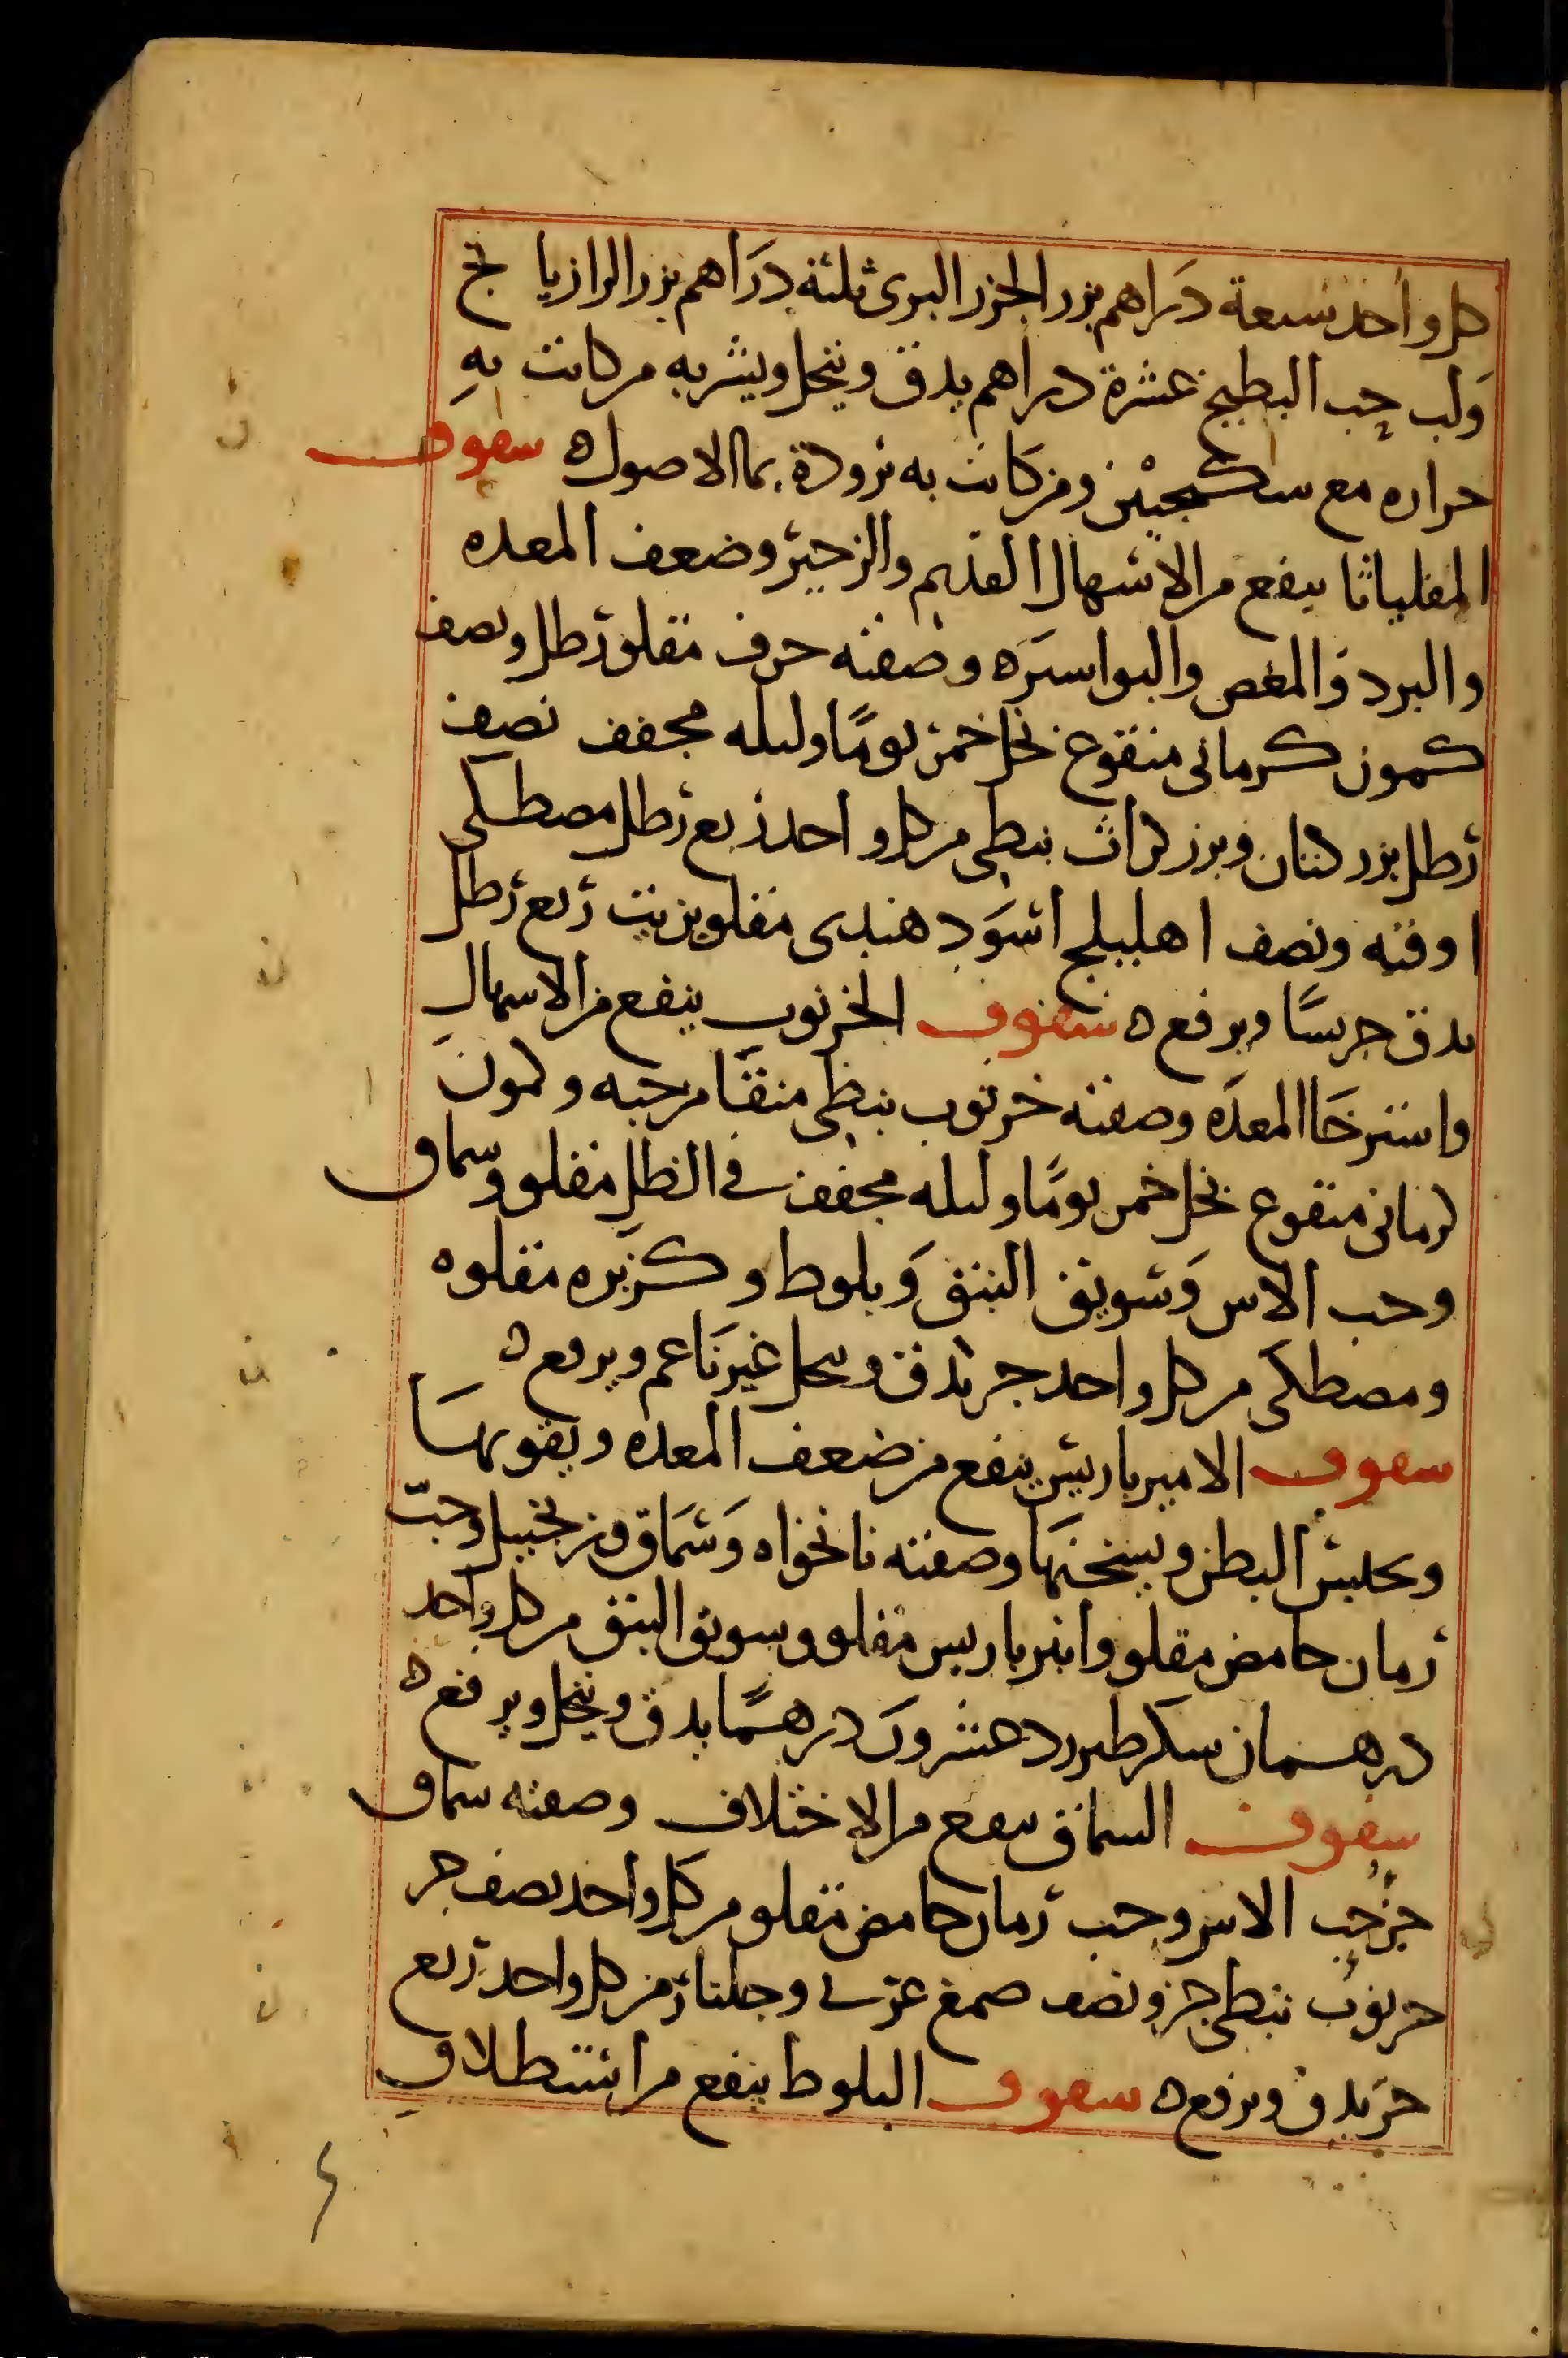 كل واحد تسعة دراهم بزر الجزر البرى ثلثه دراهم بزر الرازيا نج
ولب حب البطيخ عشرة دراهم يدق وينخل ويشربه من كانت به
حراره مع سكنجبين ومن كانت به برودة بماا لاصول ه سفوف
المقلياثا ينفع من الاسهال القديم والزحير وضعف المعده
والبرد والمغص والبواسير ه وصفته حرف مقلو رطل ونصف
كمون كرمانى منقوع بخل خمر يومًا وليله مجفف نصف
رطل بزر كتان وبزر كراث نبطى من كل واحد ربع رطل مصطكى
اوقيه ونصف اهليلج اسود هندى مقلو بزيت ربع رطل
يدق جريسًا ويرفع ه سفوف الخرنوب ينفع من الاسهال
واسترخا المعده وصفته خرنوب نبطى منقا من حبه وكمون
كرمانى منقوع بخل خمر يومًا وليله مجفف فى الظل مقلو وسماق
وحب الاس وسويق النبق وبلوط وكزبره مقلوه
ومصطكى من كل واحد جز يدق وينخل غير ناعم ويرفع ه
سفوف الاميرباريس ينفع من ضعف المعده ويقويها
ويحبس البطن ويسخنها وصفته نانخواه وسماق وزنجبيل وحب
رمان حامض مقلو وانبرباريس مقلو وسويق النبق من كل واحد
درهمان سكر طبرزد عشرون درهمًا يدق وينخل ويرفع ه
سفوف السماق ينفع من الاختلاف وصفته سماق
جز حب الاس وحب رمان حامض مقلو من كل واحد نصف جز
خرنوب نبطى جز ونصف صمغ عربى وجلنار من كل واحد ربع
جز يدق ويرفع ه سفوف البلوط ينفع من استطلاق